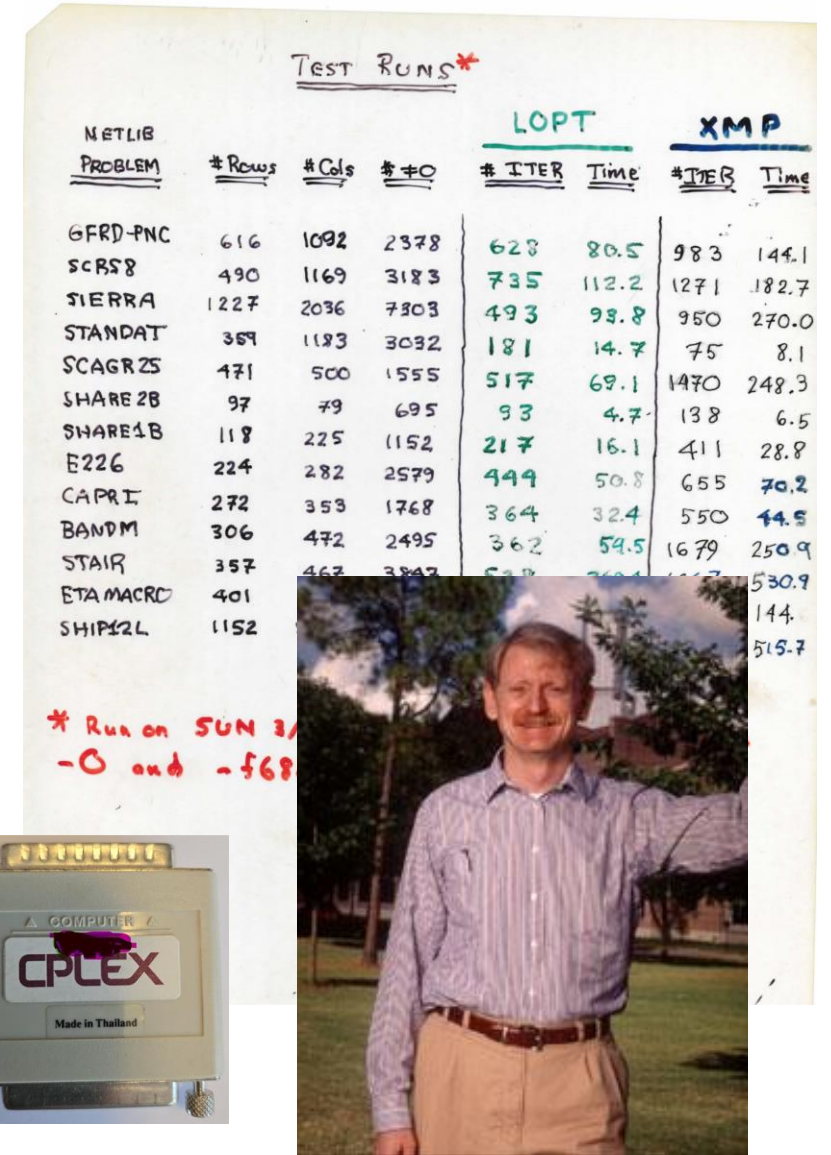 TEST RUNS*
LOPT XMP
NETLIB
PROBLEM # Rows # Cols # ≠0 # ITER Time # ITER Time
GFRD-PNC 616 1092 2378 628 80.5 983 144.1
SCRS8 490 1169 3183 735 112.2 1271 182.7
SIERRA 1227 2036 7303 493 98.8 950 270.0
STANDAT 359 1183 3032 181 14.7 75 8.1
SCAGR25 471 500 1555 517 69.1 1470 248.3
SHARE2B 97 79 695 93 4.7 138 6.5
SHARE1B 118 225 1152 217 16.1 411 28.8
E226 224 282 2579 449 50.8 655 70.2
CAPRI 272 353 1768 364 32.4 550 44.5
BANDM 306 472 2495 362 59.5 1679 250.9
STAIR 357 467 530.9
ETAMACRO 401 144.
SHIP12L 1152 515.7
* Run on SUN 3/
-O and -f68
COMPUTER
CPLEX
Made in Thailand